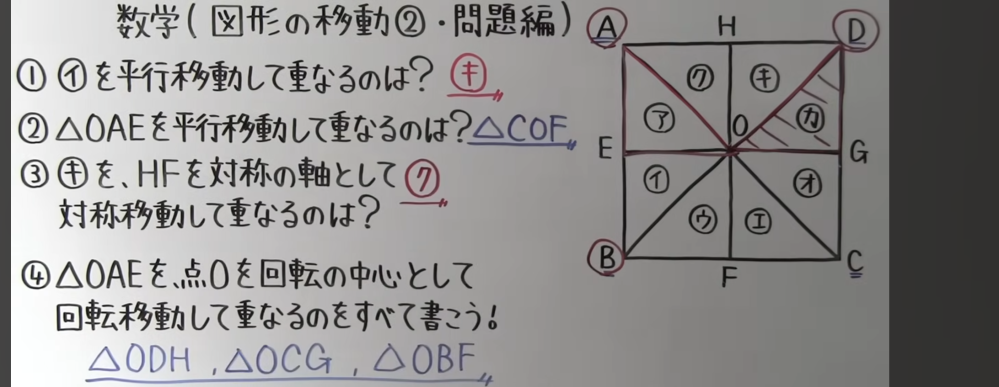 数学(図形の移動②・問題編)
① ㋑を平行移動して重なるのは? ㋖
② △OAEを平行移動して重なるのは? △COF
③ ㋖を、HFを対称の軸として ㋗
対称移動して重なるのは?
④ △OAEを、点Oを回転の中心として
回転移動して重なるのをすべて書こう!
△ODH , △OCG , △OBF
A H D
㋗ ㋖
㋐ O ㋕
E G
㋑ ㋔
㋒ ㋓
B F C